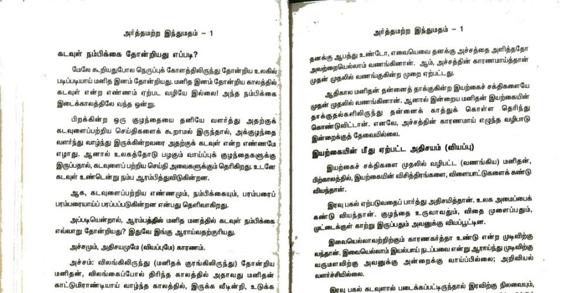 அர்த்தமற்ற இந்துமதம் – 1
கடவுள் நம்பிக்கை தோன்றியது எப்படி?
மேலே கூறியதுபோல நெருப்புக் கோளத்திலிருந்து தோன்றிய உலகில்
படிப்படியாய் மனித இனம் தோன்றியது. மனித இனம் தோன்றிய காலத்தில்
கடவுள் என்ற எண்ணம் ஏற்பட வழியே இல்லை! அந்த நம்பிக்கை
இடைக்காலத்திலே வந்த ஒன்று.
பிறக்கின்ற ஒரு குழந்தையை தனியே வளர்த்து அதற்குக்
கடவுளைப்பற்றிய செய்திகளைக் கூறாமல் இருந்தால், அக்குழந்தை
வளர்ந்து வாழ்ந்து இறக்கின்றவரை அதற்குக் கடவுள் என்ற எண்ணமே
எழாது. ஆனால் உலகத்தோடு பழகும் வாய்ப்புக் குழந்தைகளுக்கு
இருப்பதால், கடவுளைப் பற்றிய செய்தி அவைகளுக்குத் தெரிகிறது. உடனே
கடவுள் உண்டென்று நம்ப ஆரம்பித்துவிடுகின்றன.
ஆக, கடவுளைப்பற்றிய எண்ணமும், நம்பிக்கையும், பரம்பரைப்
பரம்பரையாய்ப் பரப்பப்படுகின்றன என்பது தெளிவாகிறது.
அப்படியென்றால், ஆரம்பத்தில் மனித மனத்தில் கடவுள் நம்பிக்கை
எவ்வாறு தோன்றியது? இதுவே இங்கு ஆராய்வதற்குரியது.
அச்சமும், அதிசயமுமே (வியப்புமே) காரணம்.
அச்சம்: விலங்கிலிருந்து (மனிதக் குரங்கிலிருந்து) தோன்றிய
மனிதன், விலங்கைப்போல் திரிந்த காலத்தில் அதாவது மனிதன்
காட்டுமிராண்டியாய் வாழ்ந்த காலத்தில், இருக்க வீடின்றி, உடுக்க
அர்த்தமற்ற இந்துமதம் – 1
தனக்கு ஆபத்து உண்டோ, எவையெவை தனக்கு அச்சத்தை அளித்ததோ
அவற்றையெல்லாம் வணங்கினான். ஆம், அச்சத்தின் காரணமாய்த்தான்
முதன் முதலில் வணங்குகின்ற முறை ஏற்பட்டது.
ஆதிகால மனிதன் தன்னைத் தாக்குகின்ற இயற்கைச் சக்திகளையே
முதன் முதலில் வணங்கினான். ஆனால் இன்றைய மனிதன் இயற்கையின்
தாக்குதல்களிலிருந்து தன்னைக் காத்துக் கொள்ள தெரிந்து
கொண்டுவிட்டான். எனவே, அச்சத்தின் காரணமாய் எழுந்த வழிபாடு
இன்றைக்குத் தேவையில்லை.
இயற்கையின்மீது ஏற்பட்ட அதிசயம் (வியப்பு)
இயற்கைச் சக்திகளை முதலில் வழிபட்ட (வணங்கிய) மனிதன்,
பிற்காலத்தில், இயற்கையின் விசித்திரங்களை, விளையாட்டுகளைக் கண்டு
வியந்தான்.
இரவு பகல் ஏற்படுவதைப் பார்த்து அதிசயித்தான். உலக அமைப்பைக்
கண்டு வியந்தான். குழந்தை உருவாவதும், விதை முளைப்பதும்,
முட்டைக்குள் காற்று இருப்பதும் அவனுக்கு வியப்பூட்டின.
இவையெல்லாவற்றிற்கும் காரணகர்த்தா உண்டு என்ற முடிவிற்கு
வந்தான். இவையெல்லாம் இயல்பாய் நடப்பவை என்று ஆராய்ந்து முடிவிற்கு
வருமளவிற்கு அவனுக்கு அன்றைக்கு வாய்ப்பில்லை; அறிவியல்
வளர்ச்சியில்லை.
இரவு பகல் கடவுளால் படைக்கப்பட்டிருந்தால் இரவிற்கு நிலவையும்,